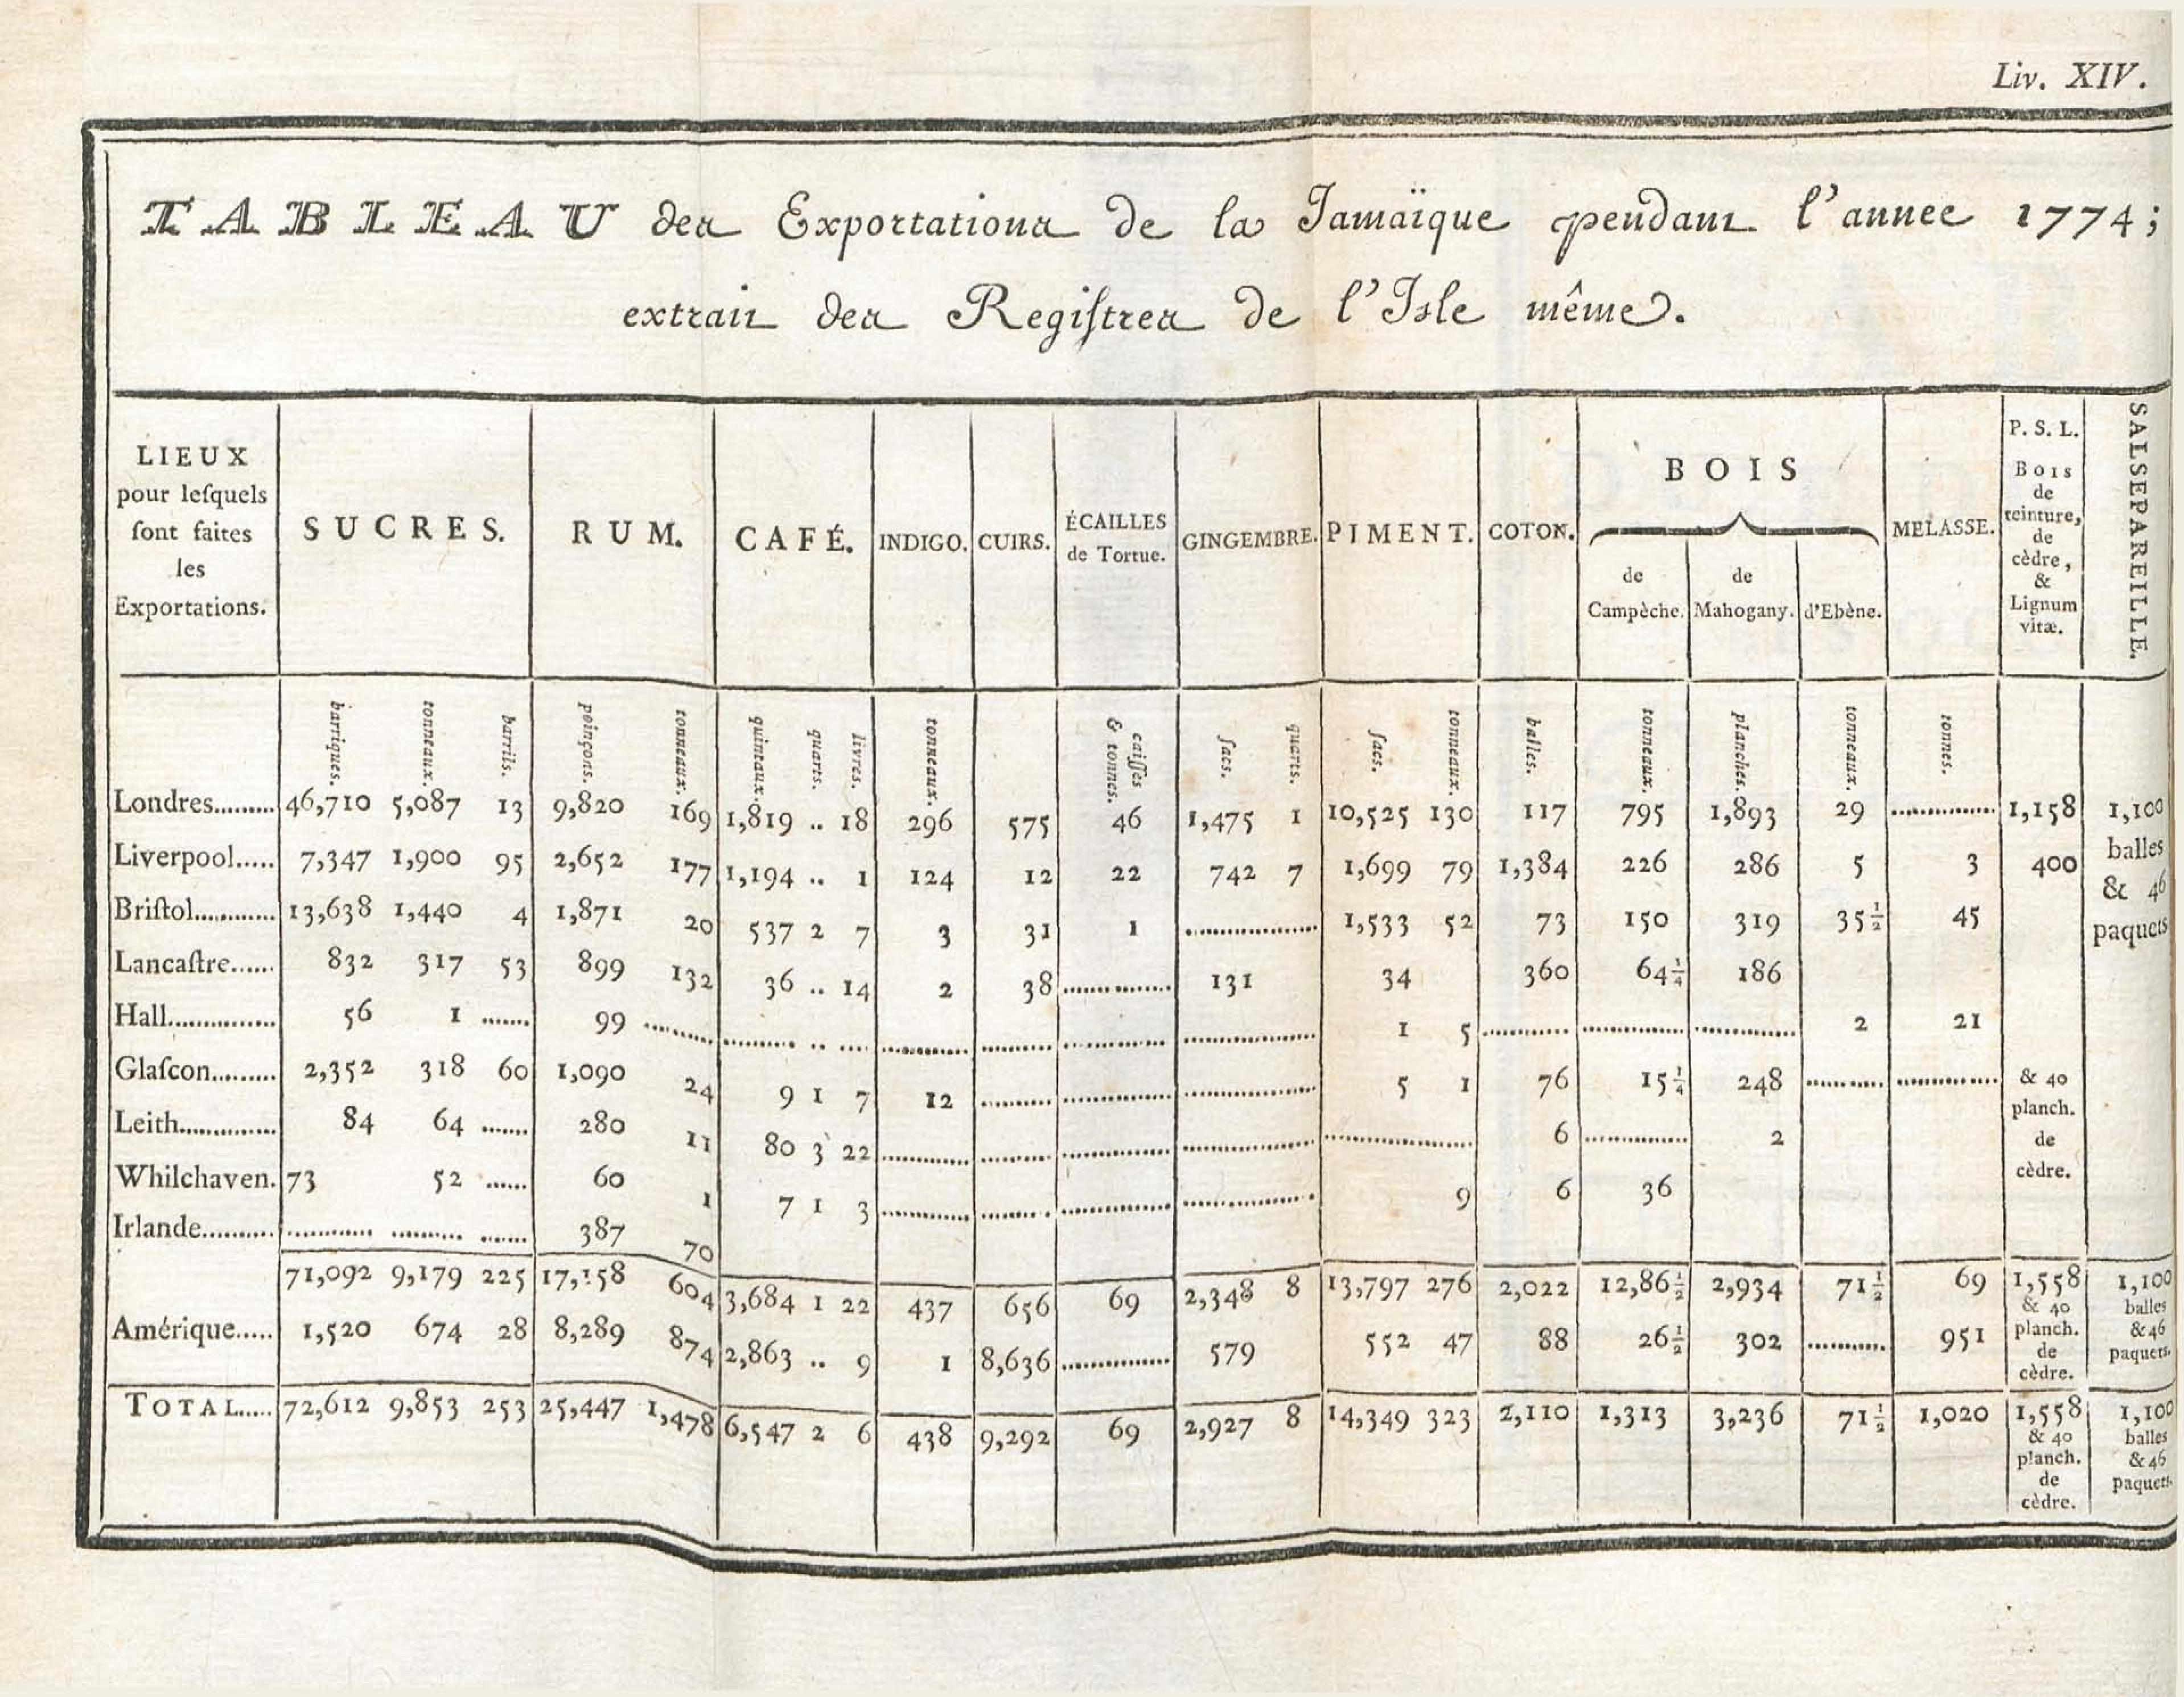 Liv. XIV.
TABLEAU des Exportations de la Jamaïque pendant l'annee 1774;
extrait des Regiſtres de l'Isle même.
LIEUX pour leſquels ſont faites les Exportations.
SUCRES.
RUM.
CAFÉ.
INDIGO.
CUIRS.
ÉCAILLES de Tortue.
GINGEMBRE.
PIMENT.
COTON.
BOIS
de Campèche.
de Mahogany.
d'Ebène.
MELASSE.
P. S. L. Bois de teinture, de cèdre, & Lignum vitæ.
SALSEPAREILLE.
barriques. tonneaux. barrils. poinçons. tonneaux. quintaux. quarts. livres. tonneaux. caiſſes & tonnes. ſacs. quarts. ſacs. tonneaux. balles. tonneaux. planches. tonneaux. tonnes.
Londres......... 46,710 5,087 13 9,820 169 1,819 .. 18 296 575 46 1,475 1 10,525 130 117 795 1,893 29 ............. 1,158 1,100 balles & 46 paquets
Liverpool..... 7,347 1,900 95 2,652 177 1,194 .. 1 124 12 22 742 7 1,699 79 1,384 226 286 5 3 400
Briſtol............ 13,638 1,440 4 1,871 20 537 2 7 3 31 1 ................ 1,533 52 73 150 319 35½ 45
Lancaſtre...... 832 317 53 899 132 36 .. 14 2 38 ............. 131 34 360 64¼ 186
Hall............... 56 1 ....... 99 .......... ........... .. .... ............ .......... ............. ................ 1 5 .......... ............. ............. 2 21
Glaſcon......... 2,352 318 60 1,090 24 9 1 7 12 ......... ............. ................ 5 1 76 15¼ 248 .......... ............. & 40 planch. de cèdre.
Leith.............. 84 64 ....... 280 11 80 3 22 ............ .......... ............. ................ .................. 6 ............. 2
Whilchaven. 73 52 ...... 60 1 7 1 3 ............ .......... ............. ................ 9 6 36
Irlande.......... ............ .......... ...... 387 70
71,092 9,179 225 17,158 604 3,684 1 22 437 656 69 2,348 8 13,797 276 2,022 12,86½ 2,934 71½ 69 1,558 & 40 planch. de cèdre. 1,100 balles & 46 paquets.
Amérique..... 1,520 674 28 8,289 874 2,863 .. 9 1 8,636 ............. 579 552 47 88 26½ 302 .......... 951
TOTAL..... 72,612 9,853 253 25,447 1,478 6,547 2 6 438 9,292 69 2,927 8 14,349 323 2,110 1,313 3,236 71½ 1,020 1,558 & 40 planch. de cèdre. 1,100 balles & 46 paquets.